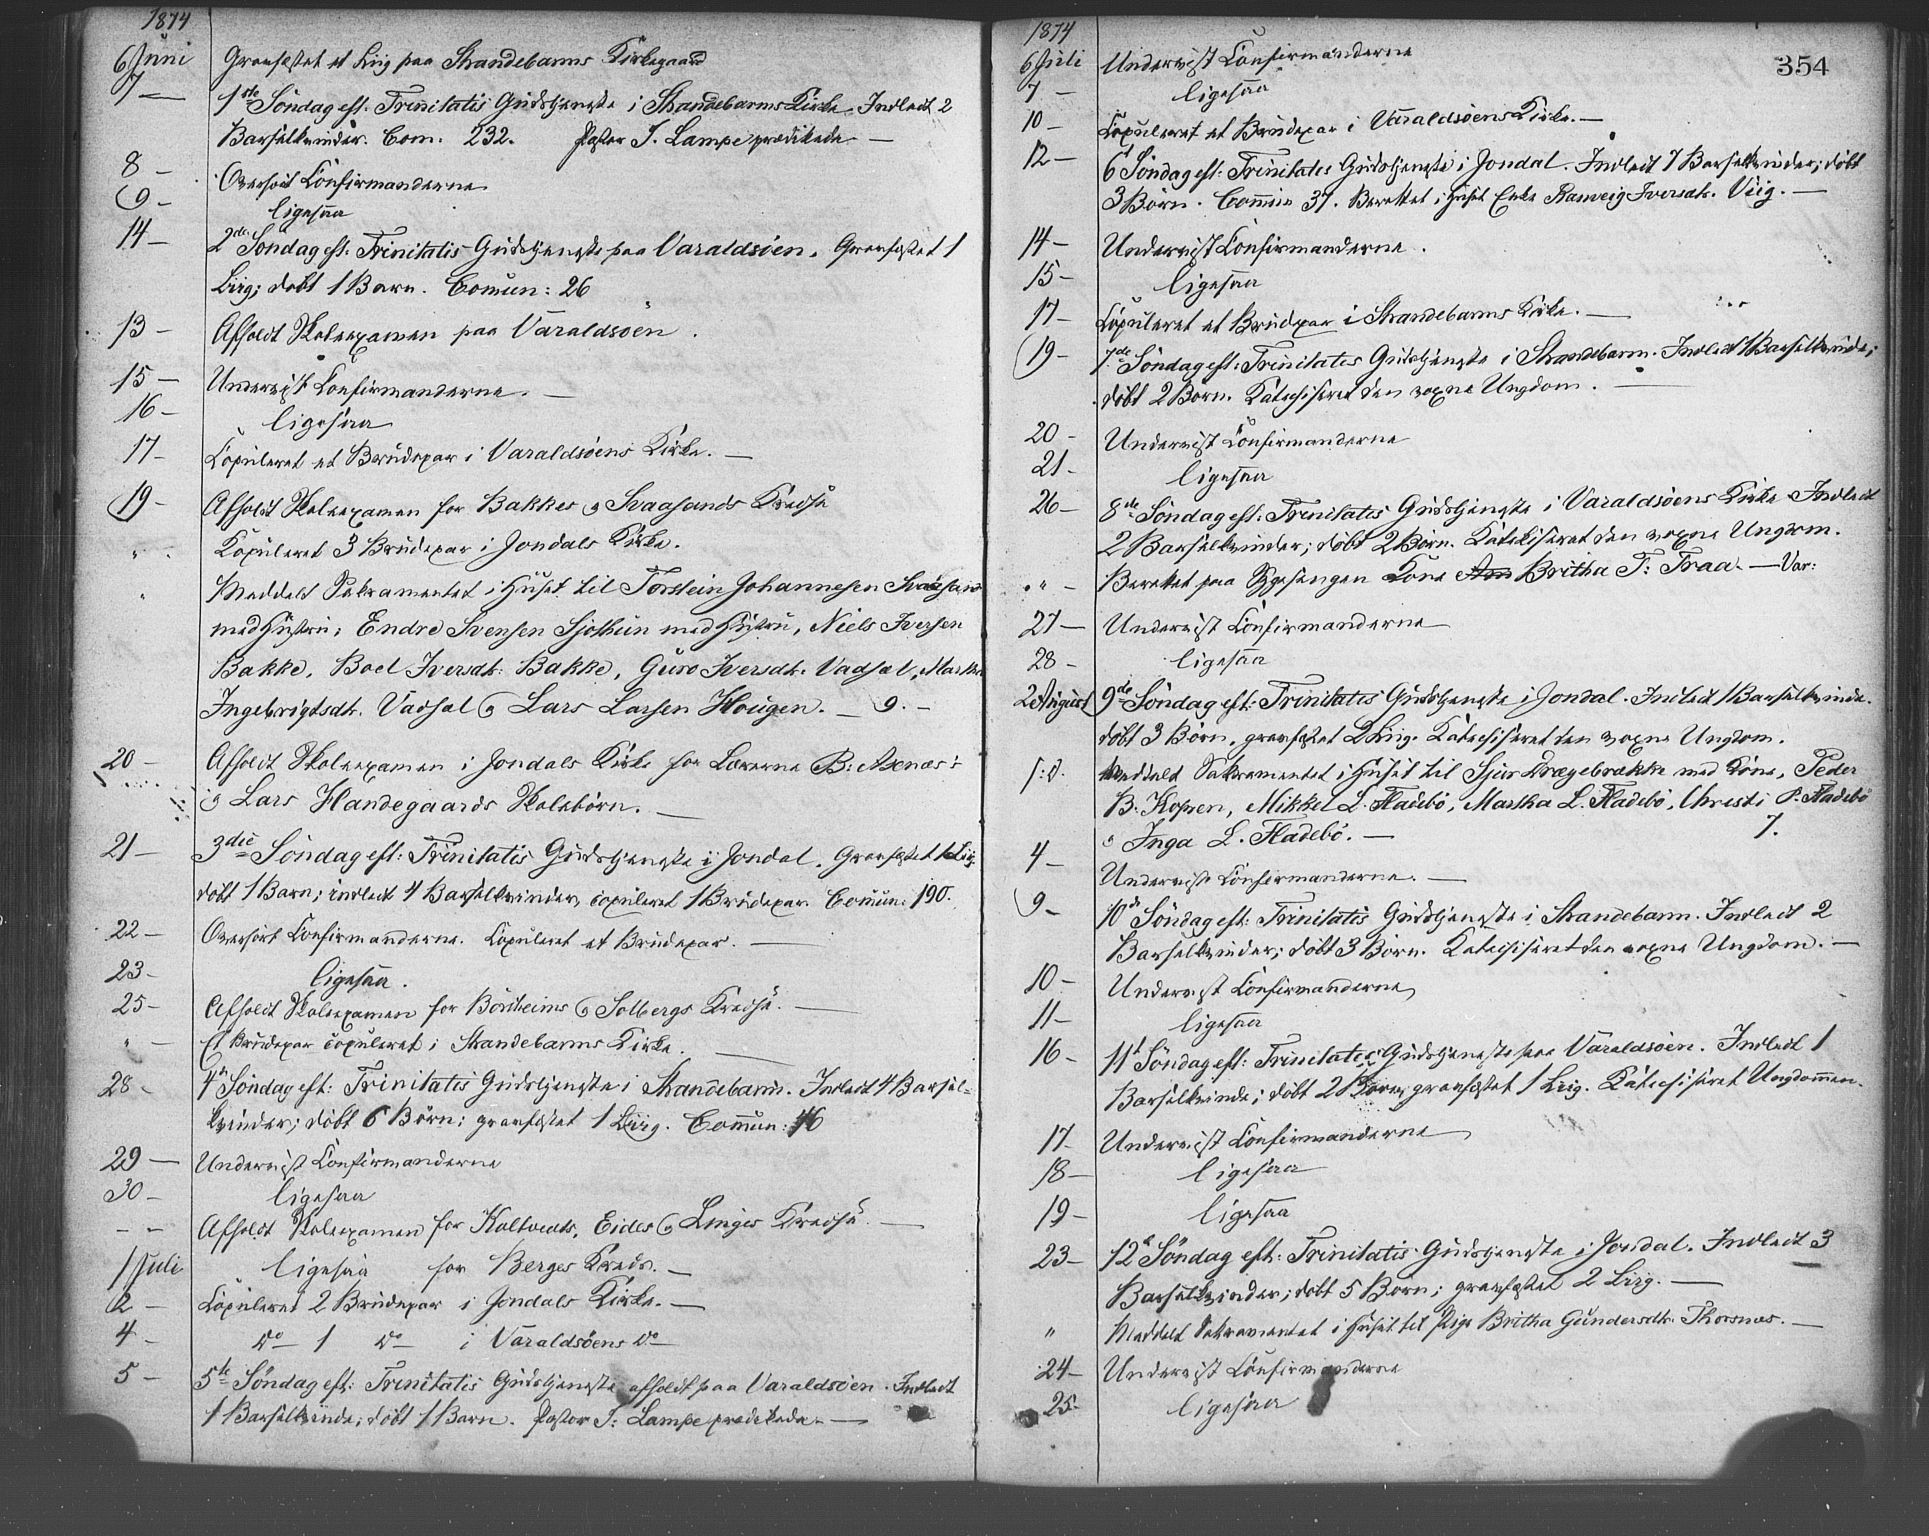 1874
6 Juni Gravfæstet et Liig paa Strandebarms Kirkegaard
7 — 1ste Söndag eft: Trinitatis Gudstjeneste i Strandebarms Kirke. Indledt 2
Barselkvinder. Com. 232. Pastor J. Lampe prædikede —
8 — Overhört Confirmanderne
9 — ligesaa
14 — 2den Söndag eft: Trinitatis Gudstjeneste paa Varaldsöen. Gravfæstet 1
Liig; döbt 1 Barn. Comun: 26
13 — Afholdt Skoleexamen paa Varaldsöen.
15 — Underviist Confirmanderne. —
16 — ligesaa
17 — Copuleret et Brudepar i Varaldsöens Kirke. —
19 — Afholdt Skoleexamen for Bakkes og Svaasands Kredse
" Copuleret 3 Brudepar i Jondals Kirke.
" Meddelt Sakramentet i Huset til Torstein Johannesen Svaasand
med Hustru, Endre Svensen med Hustru, Niels Iversen
Bakke, Boel Iversdtr: Bakke, Guro Iversdtr. Vadsel, Martha
Ingebrigtsdtr. Vadsel og Lars Larsen Hougen. — 9. —
20 — Afholdt Skoleexamen i Jondals Kirke for Lærerne B: Axnæs:
og Lars Handegaards Skolebörn. —
21 — 3die Söndag eft: Trinitatis Gudstjeneste i Jondal. Gravfæstet 1 Liig.
döbt 1 Barn; indledt 4 Barselkvinder, copuleret 1 Brudepar. Comun: 190.
22 — Overhört Confirmanderne. Copuleret et Brudepar. —
23 — ligesaa.
25 — Afholdt Skoleexamen for Börsheims og Solbergs Kredse. —
" — Et Brudepar copuleret i Strandebarms Kirke. —
28 — 4de Söndag eft: Trinitatis Gudstjeneste i Strandebarm. Indledt 4 Barsel-
kvinder; döbt 6 Börn; gravfæstet 1 Liig. Commun: 46
29 — Underviist Confirmanderne
30 — ligesaa
— " — Afholdt Skoleexamen for Eides og Linges Kredse. —
1 Juli ligesaa for Berges Kreds. —
2 — Copuleret 2 Brudepar i Jondals Kirke. —
4 — do 1 do i Varaldsöens do —
5 — 5te Söndag eft: Trinitatis Gudstjeneste afholdt paa Varaldsöen. Indledt
1 Barselkvinde; döbt 1 Barn. Pastor J: Lampe prædikede. —
1874
354
6 Juli Underviist Confirmanderne
7 — ligesaa
10 — Copuleret et Brudepar i Varaldsöens Kirke. —
12 — 6t Söndag eft: Trinitatis Gudstjeneste i Jondal. Indledt 7 Barselkvinder; döbt
3 Börn. Commun 37. Berettet i Huset Enke Ranveig Iversdtr. Viig. —
14 — Underviist Confirmanderne.
15 — ligesaa
17 — Copuleret et Brudepar i Strandebarms Kirke. —
19 — 7de Söndag eft: Trinitatis Gudstjeneste i Strandebarm. Indledt 1 Barselkvinde;
döbt 2 Börn. Katechiseret den voxne Ungdom. —
20 — Underviist Confirmanderne
21 — ligesaa
26 — 8de Söndag eft: Trinitatis Gudstjeneste i Varaldsöens Kirke. Indledt
2 Barselkvinder; döbt 2 Börn. Katechiseret den voxne Ungdom.
" — Berettet paa Sygesengen Kone Britha T: Traa. — Var:
27 — Underviist Confirmanderne
28 — ligesaa
2 August 9de Söndag eft: Trinitatis Gudstjeneste i Jondal. Indledt 1 Barselkvinde.
döbt 3 Börn, gravfæstet 2 Liig. Katechiseret den voxne Ungdom.
s: d. Meddelt Sakramentet i Huset til Sjur Drægebrække med Kone, Peder
B. Kopren, Mikkel L. Fladebö, Martha L. Fladebö, Christi P. Fladebö
og Inga L. Fladebö. — 7.
4 — Underviist Confirmanderne. —
9 — 10de Söndag eft: Trinitatis Gudstjeneste i Strandebarm. Indledt 2
Barselkvinder; döbt 3 Börn. Katechiseret den voxne Ungdom. —
10 — Underviist Confirmanderne
11 — ligesaa
16 — 11te Söndag eft: Trinitatis Gudstjeneste paa Varaldsöen. Indledt 1
Barselkvinde; döbt 2 Börn, gravfæstet 1 Liig. Katechiseret Ungdommen.
17 — Underviist Confirmanderne
18 — ligesaa
19 — ligesaa
23 — 12te Söndag eft: Trinitatis Gudstjeneste i Jondal. Indledt 3
Barselkvinder; döbt 5 Börn; gravfæstet 2 Liig. —
" Meddelt Sakramentet i Huset til Pige Britha Gundersdtr. Thorsnæs. —
24 — Underviist Confirmanderne
25 — ligesaa